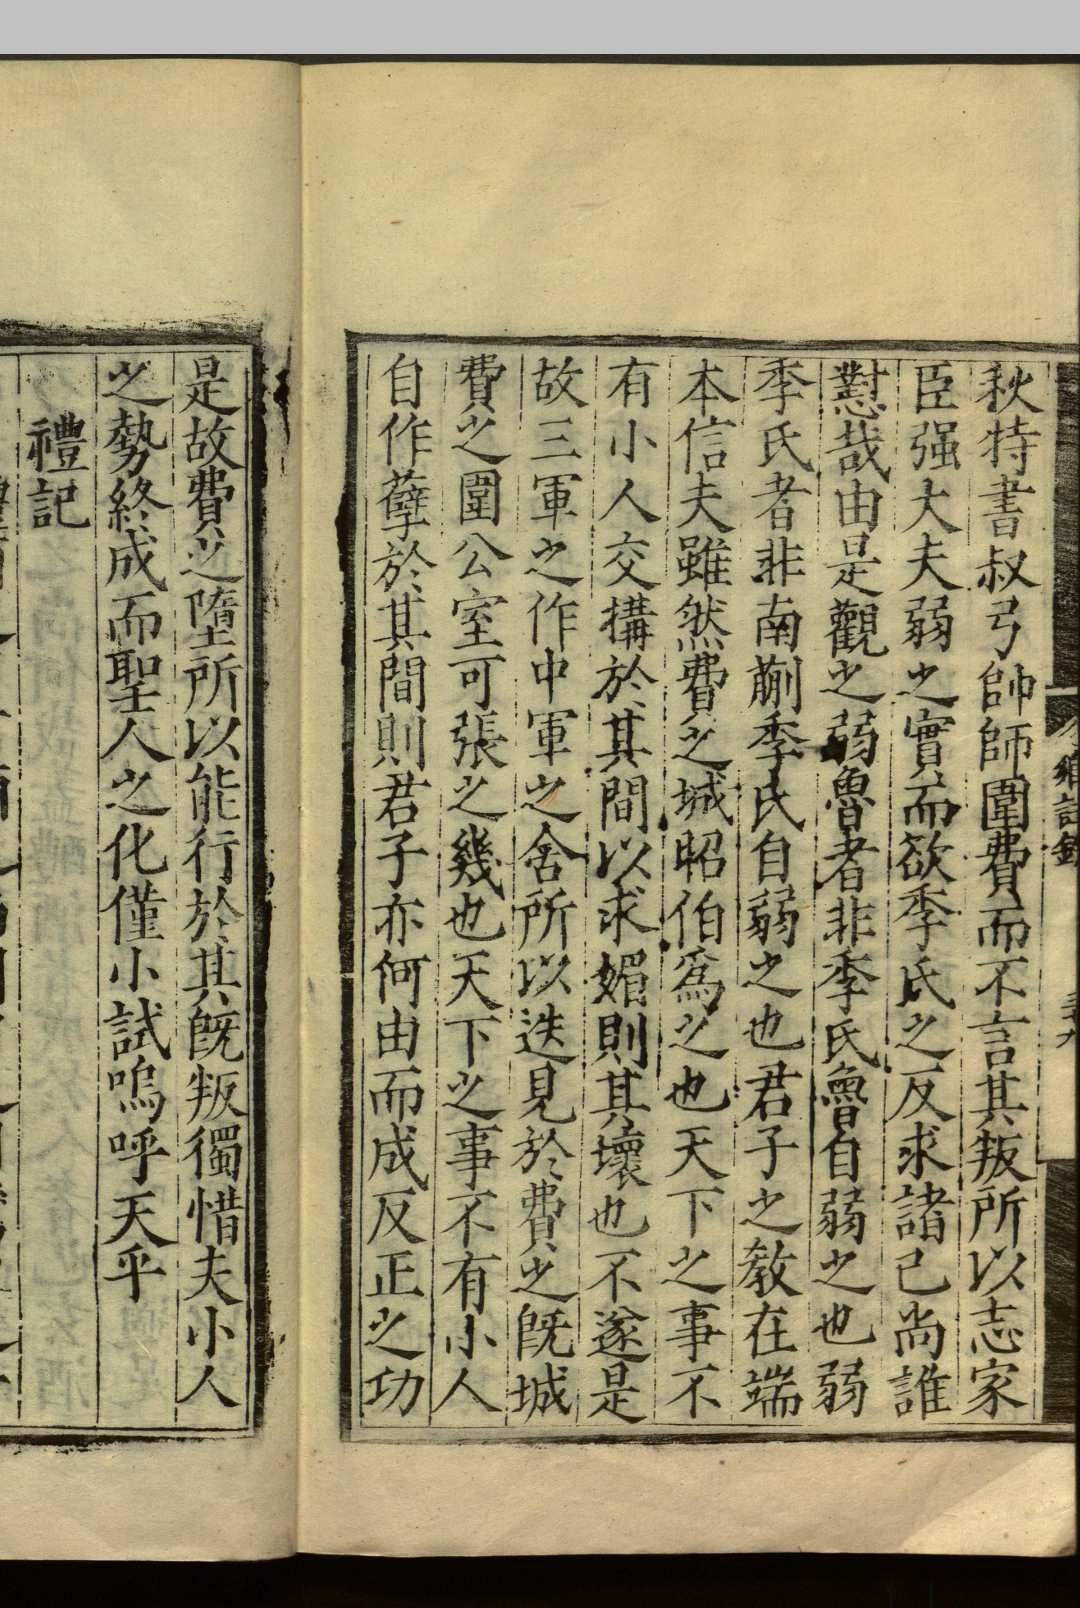 鄉試錄
三十九
秋特書叔弓帥師圍費而不言其叛所以志家
臣强大夫弱之實而欲季氏之反求諸己尚誰
懟哉由是觀之弱魯者非季氏魯自弱之也弱
季氏者非南蒯季氏自弱之也君子之教在端
本信夫雖然費之城昭伯爲之也天下之事不
有小人交搆於其間以求媚則其壞也不遂是
故三軍之作中軍之舍所以迭見於費之旣城
費之圍公室可張之幾也天下之事不有小人
自作孽於其間則君子亦何由而成反正之功
是故費之墮所以能行於其旣叛獨惜夫小人
之勢終成而聖人之化僅小試嗚呼天乎
禮記